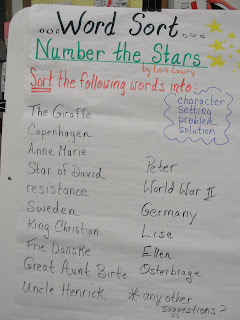 ...Word Sort...
Number the Stars
by Lois Lowry
Sort the following words into:
character
setting
problem
solution
The Giraffe
Copenhagen
Anne Marie
Star of David
resistance
Sweden
King Christian
Frie Danske
Great Aunt Birte
Uncle Henrick
Peter
World War II
Germany
Lise
Ellen
Osterbrage
* any other
suggestions?